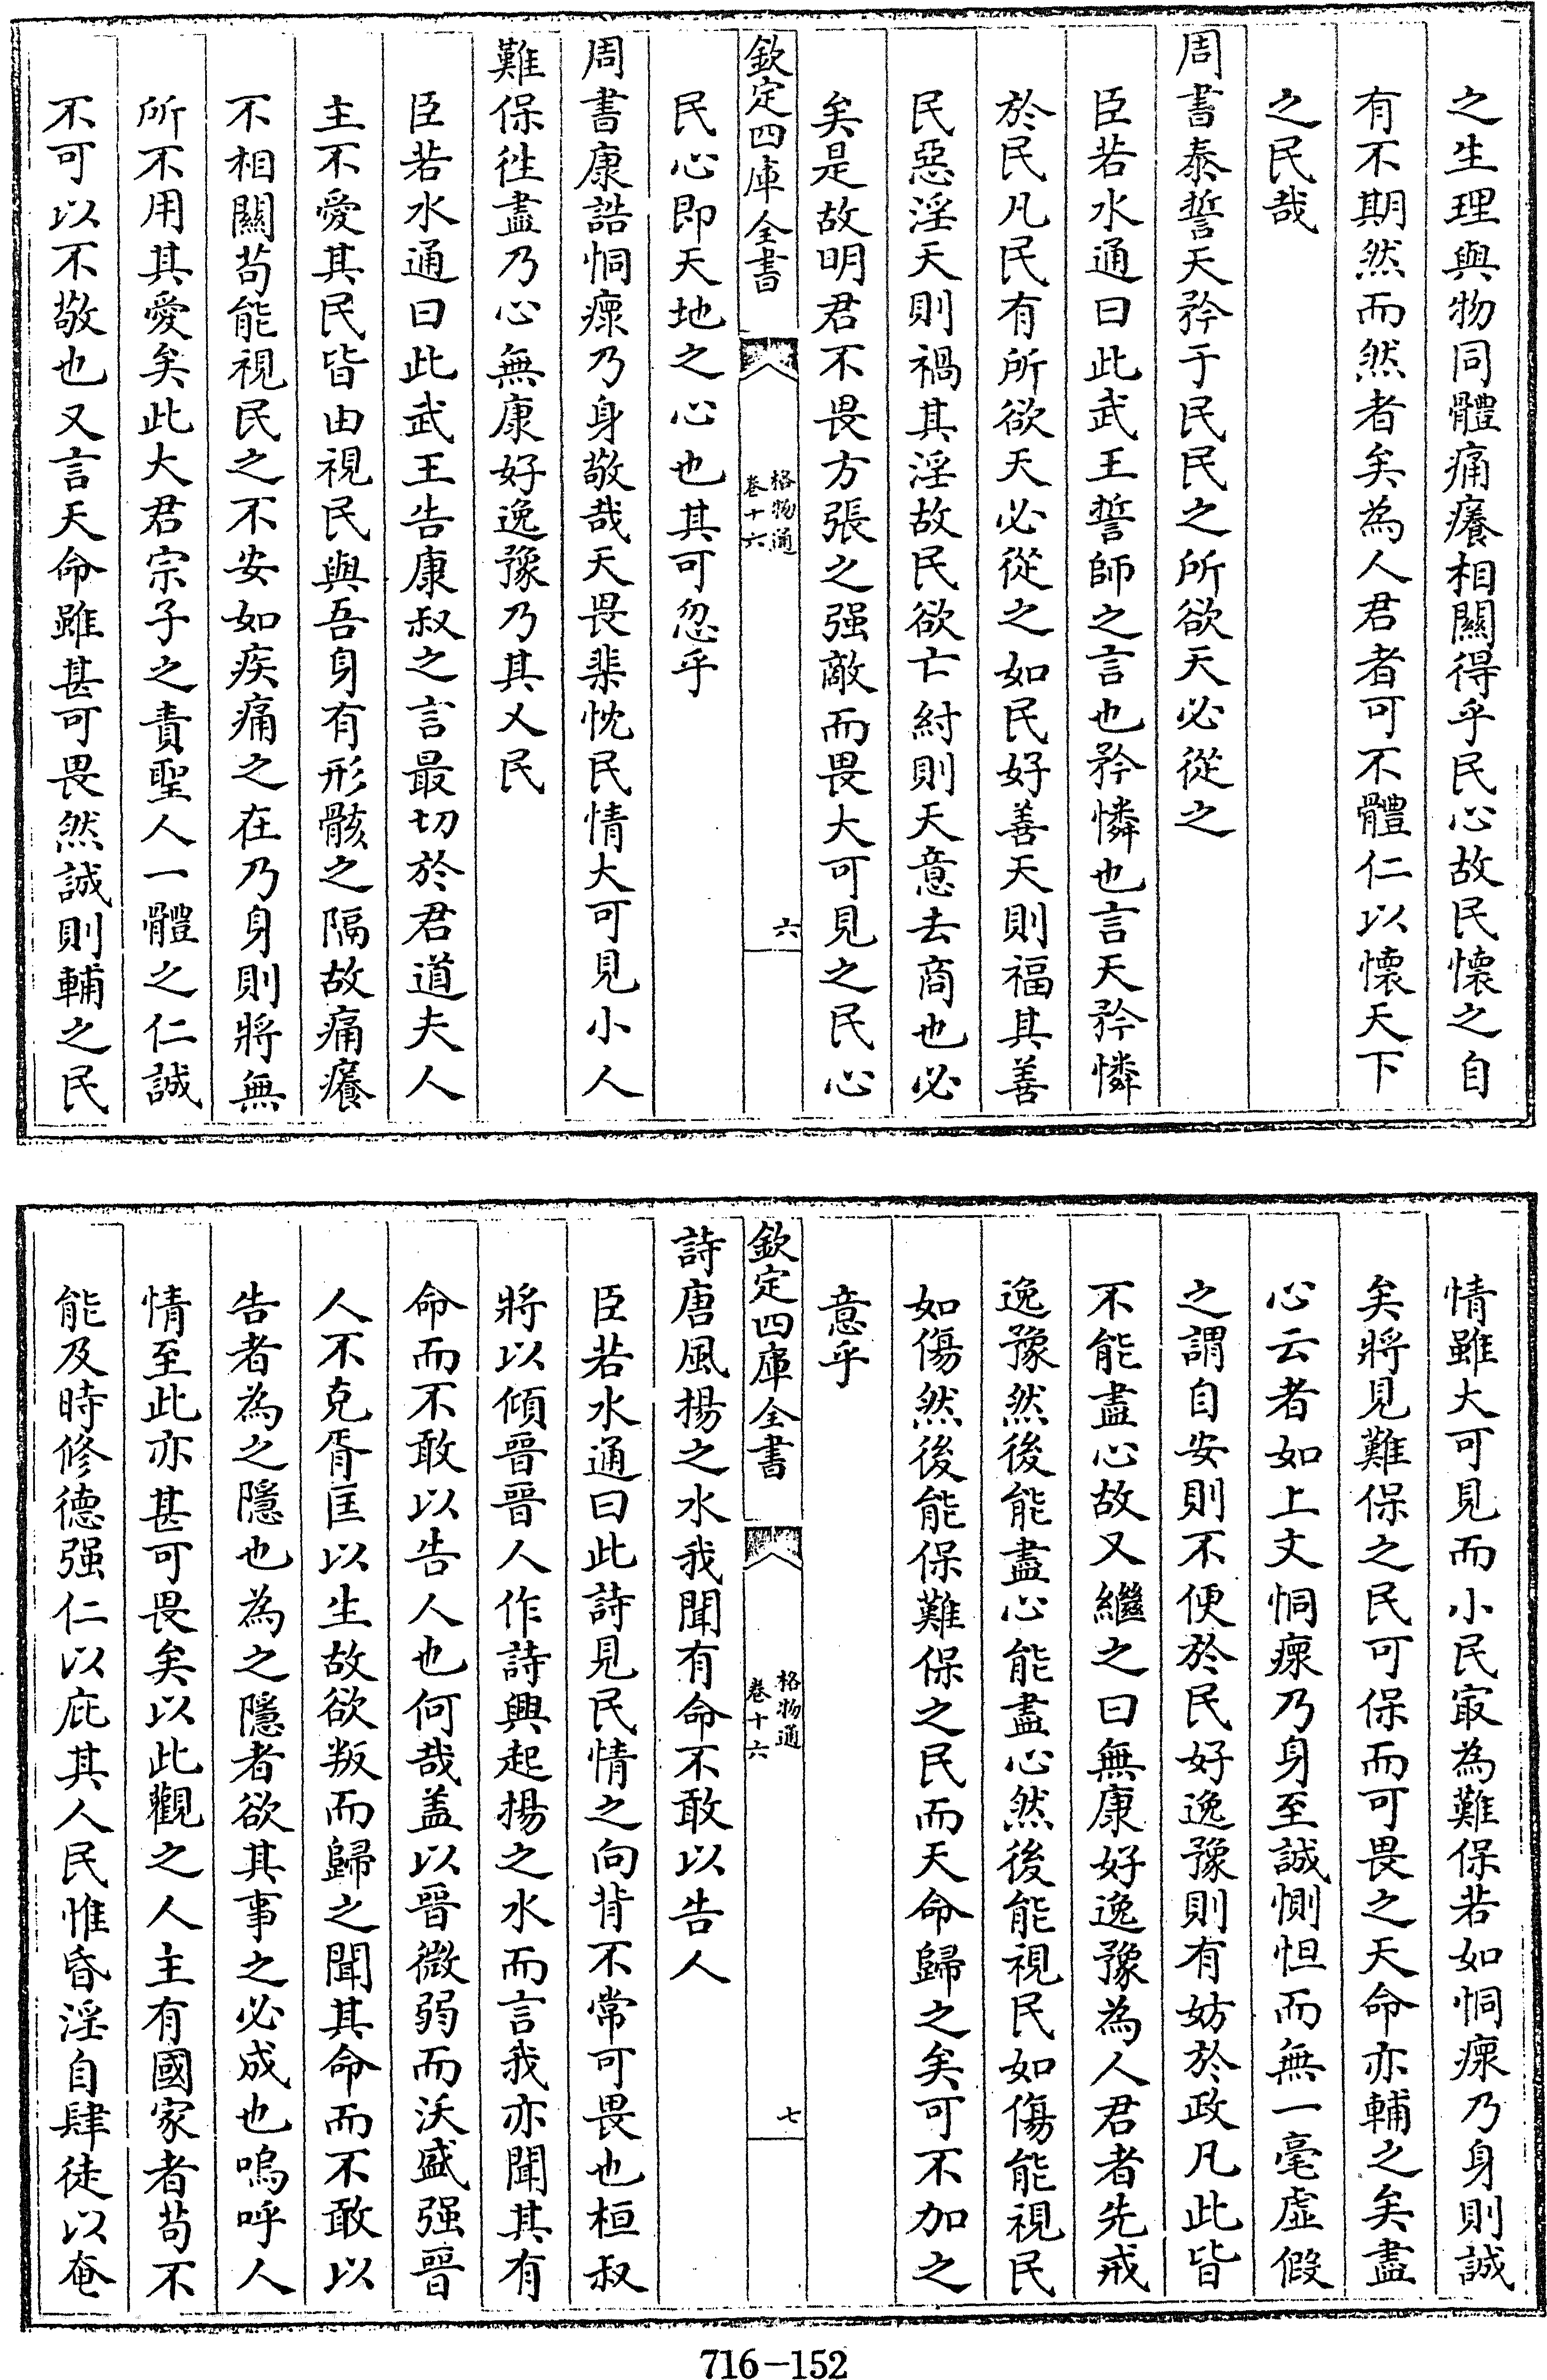 之生理與物同體痛癢相關得乎民心故民懷之自
有不期然而然者矣為人君者可不體仁以懷天下
之民哉
周書泰誓天矜于民民之所欲天必從之
臣若水通曰此武王誓師之言也矜憐也言天矜憐
於民凡民有所欲天必從之如民好善天則福其善
民惡淫天則禍其淫故民欲亡紂則天意去商也必
矣是故明君不畏方張之强敵而畏大可見之民心
欽定四庫全書
格物通
卷十六
六
民心即天地之心也其可忽乎
周書康誥恫瘝乃身敬哉天畏棐忱民情大可見小人
難保徃盡乃心無康好逸豫乃其乂民
臣若水通曰此武王告康叔之言最切於君道夫人
主不愛其民皆由視民與吾身有形骸之隔故痛癢
不相關茍能視民之不安如疾痛之在乃身則將無
所不用其愛矣此大君宗子之責聖人一體之仁誠
不可以不敬也又言天命雖甚可畏然誠則輔之民
情雖大可見而小民㝡為難保若如恫瘝乃身則誠
矣將見難保之民可保而可畏之天命亦輔之矣盡
心云者如上文恫瘝乃身至誠惻怛而無一毫虛假
之謂自安則不便於民好逸豫則有妨於政凡此皆
不能盡心故又繼之曰無康好逸豫為人君者先戒
逸豫然後能盡心能盡心然後能視民如傷能視民
如傷然後能保難保之民而天命歸之矣可不加之
意乎
欽定四庫全書
格物通
卷十六
七
詩唐風揚之水我聞有命不敢以告人
臣若水通曰此詩見民情之向背不常可畏也桓叔
將以傾晉晉人作詩興起揚之水而言我亦聞其有
命而不敢以告人也何哉盖以晉微弱而沃盛强晉
人不克胥匡以生故欲叛而歸之聞其命而不敢以
告者為之隱也為之隱者欲其事之必成也嗚呼人
情至此亦甚可畏矣以此觀之人主有國家者茍不
能及時修德强仁以庇其人民惟昏淫自肆徒以奄
716-152